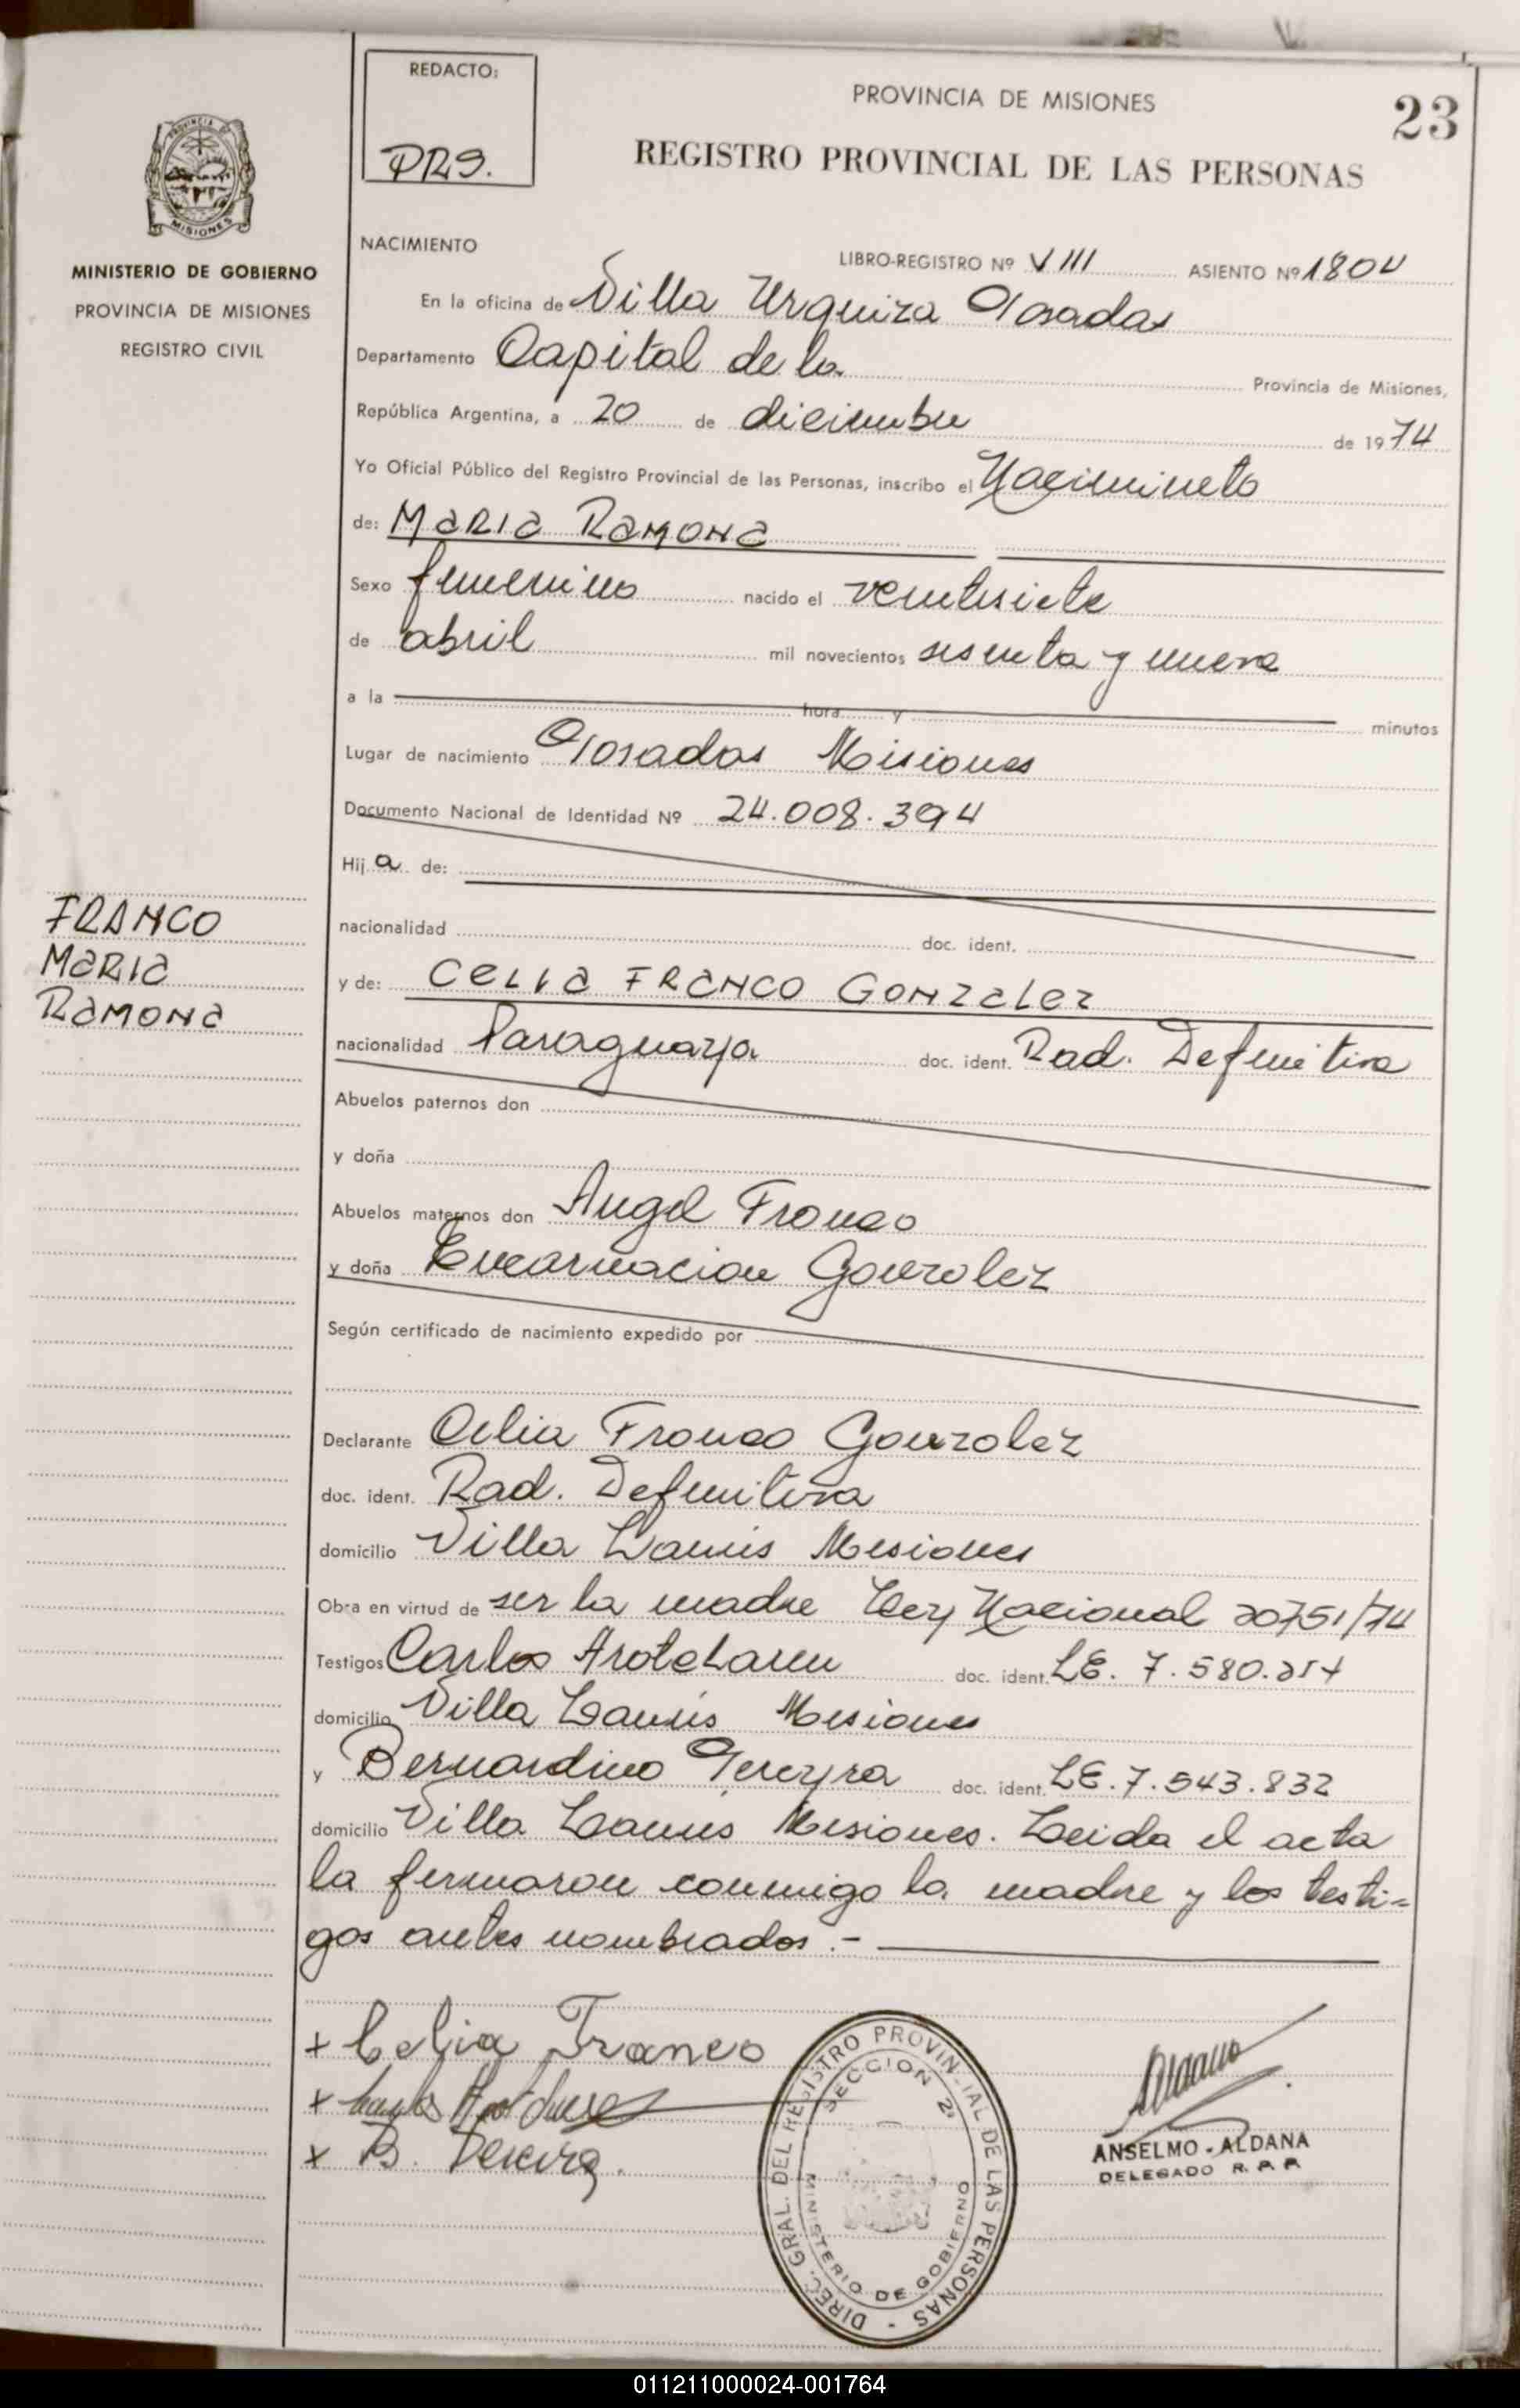 REDACTO:
DR9.
PROVINCIA DE MISIONES
23
REGISTRO PROVINCIAL DE LAS PERSONAS
PROVINCIA DE
MISIONES
MINISTERIO DE GOBIERNO
PROVINCIA DE MISIONES
REGISTRO CIVIL
NACIMIENTO
LIBRO-REGISTRO Nº VIII ASIENTO Nº 1804
En la oficina de Villa Urquiza Posadas
Departamento Capital de la Provincia de Misiones,
República Argentina, a 20 de diciembre de 1974
Yo Oficial Público del Registro Provincial de las Personas, inscribo el Nacimineto
de: MARIA RAMONA
Sexo femenino nacido el ventisiete
de abril mil novecientos sesenta y nueve
a la hora y minutos
Lugar de nacimiento Posadas Misiones
Documento Nacional de Identidad Nº 24.008.394
Hij a de:
nacionalidad doc. ident.
FRANCO
MARIA
RAMONA
y de: CELIA FRANCO GONZALEZ
nacionalidad Paraguaya doc. ident. Rad. Definitiva
Abuelos paternos don
y doña
Abuelos maternos don Angel Franco
y doña Encarnacion Gonzalez
Según certificado de nacimiento expedido por
Declarante Celia Franco Gonzalez
doc. ident. Rad. Definitiva
domicilio Villa Lanus Misiones
Obra en virtud de ser la madre Ley Nacional 20751/74
Testigos Carlos doc. ident. LE. 7.580.
domicilio Villa Lanús Misiones
y Bernardino Pereyra doc. ident. LE. 7.543.832
domicilio Villa Lanus Misiones. Leida el acta
la firmaron conmigo la madre y los testi=
gos antes nombrados.-
x Celia Franco
x Carlos
x B. Pereira.
DIREC. GRAL. DEL REGISTRO PROVINCIAL DE LAS PERSONAS -
SECCION 2ª
MINISTERIO DE GOBIERNO
Aldana
ANSELMO - ALDANA
DELEGADO R. P. P.
011211000024-001764